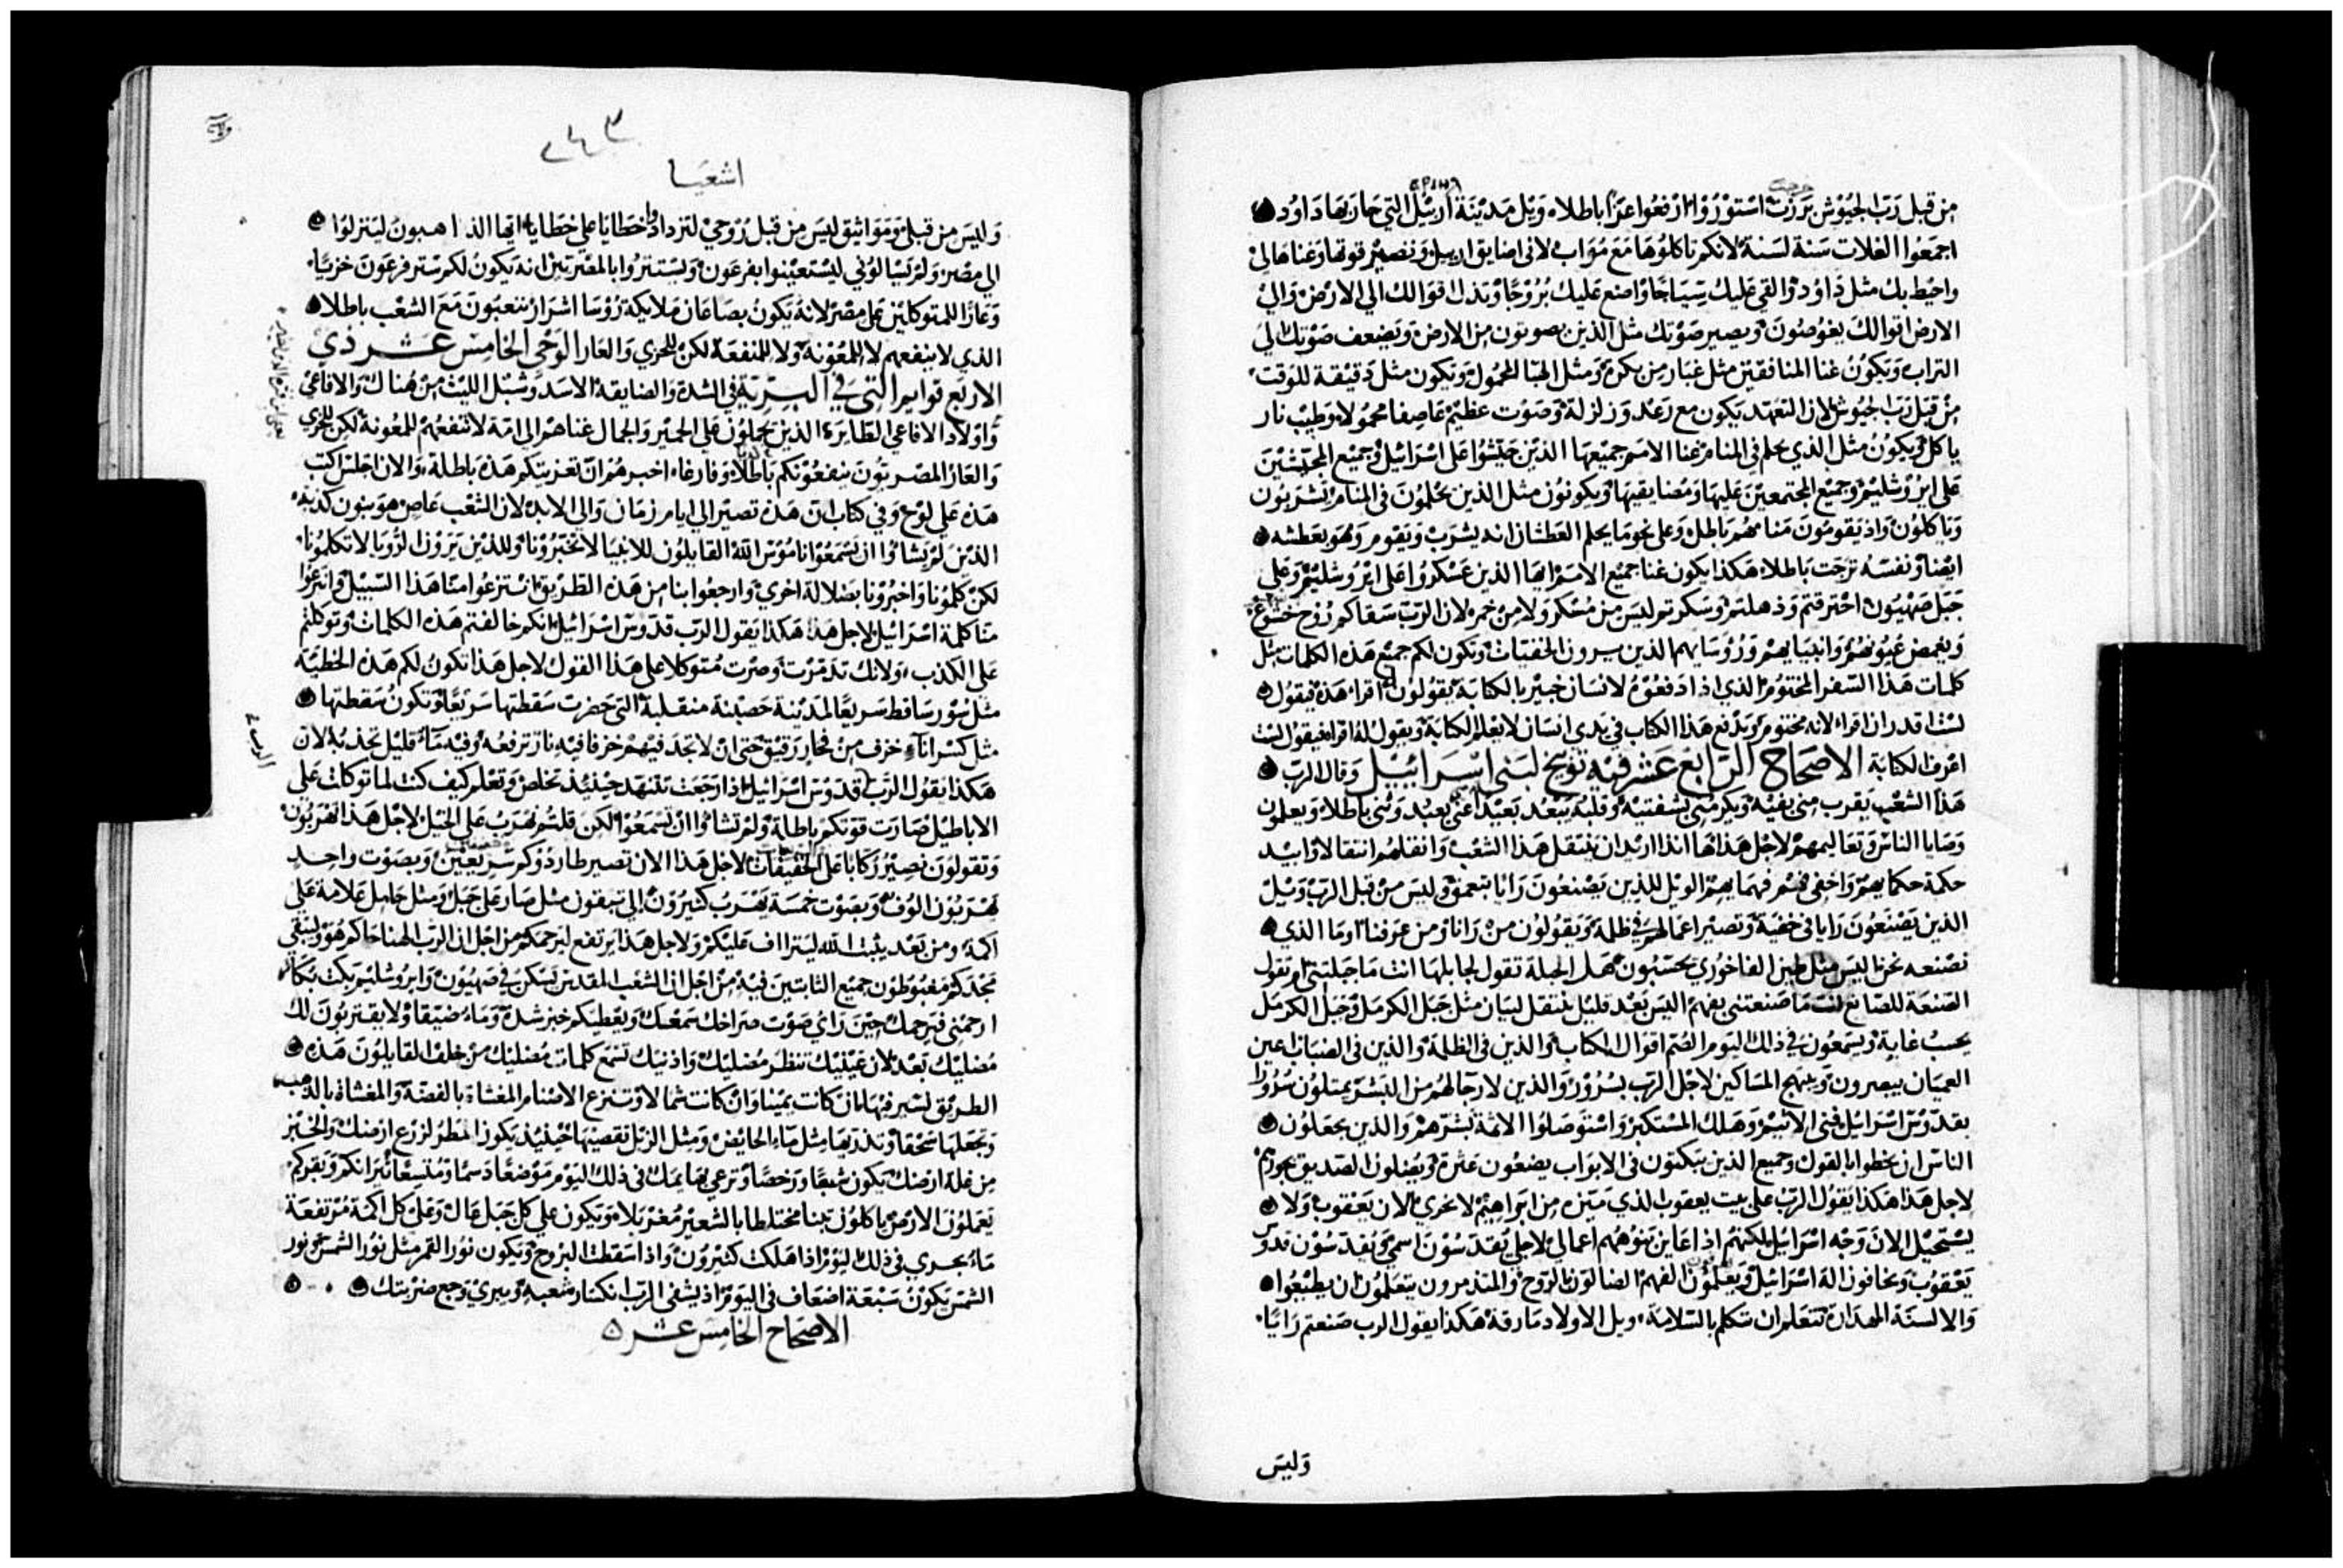 من قبل رب الجيوش برزت استوزروا ارفعوا عزا باطلا، ويل مدينة اريئل التي حاربها داوُد
اجمَعُوا الغلات سَنة لسَنة لانكم تاكلوُهَا مَعَ مُوَاب لانى اضايق اريل وتصيرُ قوتها وَغناهَا لىْ
واحيط بك مثل دَاوُد والقي عَليك سِيَاجًا واصنع عَليك بُرُوجًا وتذل اقوالك الي الارض والىٰ
الارض اقوالك يغوُصُونَ ويصير صَوْتك مثل الذين يصوتون من الارض ويضعف صَوْتك الي
التراب وَيكونُ غنا المنافقين مثل غبار من بكرة وَمثل الهبا المحمُول وتكون مثل دَقيقة للوقت
من قبَل رَبّ الجيُوش لان التعهّد يكون مع رَعْد وَزلزلة وَصَوْت عظيم عَاصِفا محمُولا وَطيب نار
ياكل ويكوُنُ مثل الذي حلم في المنام غنا الامم جميْعهَا الذين جَيّشُوا عَلى اسْرَائيل وجَميع المجَيّشيْن
عَلى ايرُوشليْم وجميع المجتمعين عَليهَا ومَضايقيهَا وَيكونوُن مثل الذين يحْلموُنَ فى المنام يَشرَبُون
وَياكلُون وَاذ يقومُونَ مَنامهُم باطل وعلى نحو مَا يحلم العَطشان انه يشرَبْ وَيَقوم وَهوَ بعَطشه
ايضا ونفسَهُ ترَجّت باطلا، هَكذا يكون غنا جميْع الامَم ايها الذين عَسْكرُوا عَلى ايرُوشليْم وَعلي
جَبَل صَهْيَوُن احترقتم وَذهلتم وسَكرتم ليسَ مِنْ مُسْكر وَلا مِنْ خمر لان الرّبّ سَقاكم رُوح خشوع
وَيغمِض عُيُونهُم وانبيَايهم وَرُوسَايهم الذين يبرون الخفيّات وتكون لكم جميْع هَذه الكلمات مِثل
كلمات هَذا السّفر المختوُم الذي اذا دَفعُوْهُ لانسَان خبيْر بالكتابَة يَقولوُن اقرا، هَذه فيَقول
لسْت اقدر ان اقرا، لانه مختوم وَيدْفع هَذا الكتاب في يَدى انسَان لا يَعْلم الكتابَة وَيقول لهُ اقرا فيقول لسْت
اعْرف الكتابَة الاصْحَاحُ الرّابع عَشر فيْه توبيْخ لبَنى اسْرَائيْل وَقال الربّ
هَذا الشعْب يَقرب منى بفيه وَيكرمُنى بشفتيْه وَقلبهُ يَبْعُد بَعيْدًا عَنى بعبُد وننى باطلا وَيعلمُون
وَصايا الناس وَتعاليمهم لاجْل هَذا هَا انذا اريْد ان ينتقل هَذا الشعْب وانقلهُم انتقالا وَابيْد
حكمة حكمايهم واخفى فهْم فهمَايهم الويل للذِين يَصْنعُونَ رَايا بتعَمق وليسَ منْ قبل الرّبّ وَيْل
الذين يَصْنعُونَ رَايا فى خفيَة وَتصيْر اعمالهم في ظلمة وَيَقولوُن منْ رَانا وَمن عَرفنا اوما الذي
نصنعه نحن اليسَ مثل طين الفاخوُري تحسَبُون هَل الجبلة تقول لجابلهَا انت مَا جَبلتنى ام تقول
الصّنعة للصّانع لسْت مَا صَنعتنى بفهم اليسَ بَعْد قليل ينتقل لبنان مثل جَبَل الكرمل وجَبَل الكرمل
يحسبُ غابة ويسمَعُون في ذلك اليَوم الصّم اقوال الكتاب والذين فى الظلمة والذين فى الضبَاب عين
العميَان يبصرون ويبتهج المسَاكين لاجْل الرّبّ بسُرُوْر والذين لا رجآ لهُم من البشر يمتلوُن سُرُورًا
بقدّوسّ اسْرَائيل فنى الاثيْم وهَلك المسْتكبر وَاسْتوْصلوُا الاثمة بشرّهمْ والذين يجعَلوُن
الناس ان يخطوا بالقول وجميع الذين يبكتون فى الابوَاب يضعُون عثرة ويُضلون الصّديق بجورهم
لاجل هَذا هَكذا يَقول الرّبّ على بيت يعقوب الذي مَيّزه مِن ابرَاهيْم لا يخزي الان يَعْقوبْ وَلا
يسْتحيْل الانَ وَجْه اسْرَائيل لكنهُم اذا عَاين بَنُوْهُم اعمالي لاجلي يَقدّسُوْنَ اسمي وَيُقدّسُوْن قدّوسَ
يَعْقوُبْ ويخافون الهَ اسْرَائيل وَيَعْلمُوْن الفهم الضالون بالرّوح والمتذمرون يتعَلمُوْن ان يطيْعُوا
والالسنة المهذارة تتعلم ان تتكلم بالسّلامَة، ويل الاولاد مَارقة هَكذا يقول الرب صَنعتم رَايًا
وَليسَ
٢٤٣
اشعيَا
وَليسَ من قبلي وَمَوَاثيق ليسَ مِن قبل رُوحيْ لتزدَادوا خطايا علي خطايا، ايها الذاهبون لينزلوا
الي مصْر، وَلم يَسْالوُني ليسْتعيْنوا بفرعَون وَيستتروُا بالمصْريين انه يَكونُ لكم ستر فرعَونَ خزيًا
وَعَارًا للمتوكلين عَلى مصْر لانهُ يَكونُ بصَاعَان مَلايكة رُوسَا اشرَار يتعبُونَ مَعَ الشعْب باطلا
الذي لا ينفعهم لا للمعُوْنة وَلا للمنفعَة لكنْ للخزي وَالعَار الوَحْى الخامِسْ عَشر ذيْ
الاربَع قوايم التي في البرية في الشدة والضايقة الاسَد وشبْل الليث مِنْ هُناكَ وَالافاعىْ
واوْلاد الافاعي الطايرَة، الذين يحملون عَلى الحميْر وَالجمال غناهُم الى امّة لا تنفعُهُم للمعُونة لكِن للخزي
وَالعَار المصريُون ينفعُونكم بَاطلا وَفارغا، اخبرهُم انّ تعزيتكم هَذه باطلة، والان اجلسْ اكتبْ
هَذه عَلي لوْح وَفي كتاب انّ هَذه تصيْر الي ايام زمَان وَالى الابد، لان الشعْب عَاص هوَ بنون كذبة
الذيْنَ لم يَشاوُا ان يَسْمَعُوْا نامُوْسَ اللّه القايلوُن للانبيَا لا تخبّرُوْنا وللذيْن يَرَوْن الرُّويَا لا تكلمُونا
لكنْ كلمُونا وَاخبرُوْنا بضلالة اخري وَارجعُوا بنا من هَذه الطرِيق انتزعُوا منّا هَذا السّبيْل وانزعُوا
منّا كلمة اسْرَائيل لاجل هَذا هَكذا يَقول الربّ قدّوسَ اسْرَائيل انكم خالفتم هَذه الكلمات وتوكلتم
عَلى الكذب، وَلانك تذمّرْت وَصرْت مُتوَكلا على هَذا القول لاجل هَذا تكونُ لكم هَذه الخطيّة
مثل سُوْر سَاقط سَريعًا لمدَينة حَصيْنة منقلبة التي حَضرت سَقطتها سَريْعًا وتكونُ سَقطتها
مثل كسْر انآء خزف مِنْ فخار رَقيْق حَتى انْ لا تجدَ فيْهمْ خزفا فيْهِ نار ترفعُه وفيْه مَاء قليْل تجذبهُ لان
هَكذا يَقول الرّب قدّوسَ اسْرَائيل اذا رَجَعَت تتنهَد حينئذ تخلصْ وَتعْلم كيف كنت لما توكلت عَلى
الاباطيْل صَارَت قوّتكم باطلة وَلم تشاوُا ان تسْمَعُوْا لكن قلتم نهْرب عَلى الخيل لاجْل هَذا تهْرَبُون
وَتقولوَن نصِيْر رُكابًا عَلى الخفيفات لاجل هَذا الان تصير طاردُوكم سَريعيْن وَبصَوْت واحدٍ
يَهرَبُوُن الوُف وَبصَوْت خمسَة يَهْرَب كثيرُوْن الى تبقون مثل صَار عَلى جَبَل وَمثل حَامِل عَلامة عَلى
اكمة، وَمن بَعْد يثبت اللّه ليتراآف عَليْكم وَلاجل هَذا يرتفع ليرحمكم من اجْل ان الرّبّ الهنا حَاكم هُوَ وَليبْقي
مَجْدكم مغبُوطوُن جميْع الثابتيْن فيْهِ مِنْ اجل ان الشعْب المقدسْ يَسْكن في صَهْيوُن وَايروُشليْم بَكت بُكآ
ارحمنى فيَرحمك حِيْن رَاي صَوْت صرَاخك سَمعَك وَيُعْطيكم خبز شدة وَمَاء ضيْقا وَلا يقتربُونَ لك
مُضليْك بَعْد لان عَيْنيْك تنظر مُضليْك وَاذنيك تسْمَع كلمات مُضليْك منْ خلف القايلوُنَ هَذه
الطريْق لنسير فيْهَا ان كانت يميْنا وَانْ كانت شمالا وَتنزع الاصْنام المغشاة بالفضة والمغشاة بالذهب
وَتجعَلهَا سَحقا وتذريهَا مثل مَاء الحائِضْ وَمثل الزبل تقصيهَا حينئذ يَكون المطرُ لزرع ارضك وَالخبْز
مِن غلة ارضك يَكون شبعًا وَرَخصًا وترعى بَهايمك فى ذلك اليَوم مَوْضعًا دَسما وَمُتسعًا ثيْرَانكم وَبقركم
يَعملوُن الارْض ياكلوُن تبنا مختلطا بالشعيْر مُغرْبَلا، وَيَكون علي كل جَبَل عَال وَعَليْ كل اكمة مُرْتفعَة
مَاءٌ يجري فى ذلك اليَوْم اذا هَلكت كثيْروُن وَاذا سَقطت البرُوج وَيكون نوُر القمر مثل نوُر الشمس وَنور
الشمْس يَكون سَبْعة اضعَاف فى اليَوْم اذ يشفى الربّ انكسَار شعبهِ وَيبري وَجع ضربتك
الاصْحَاح الخامِسَ عَشر